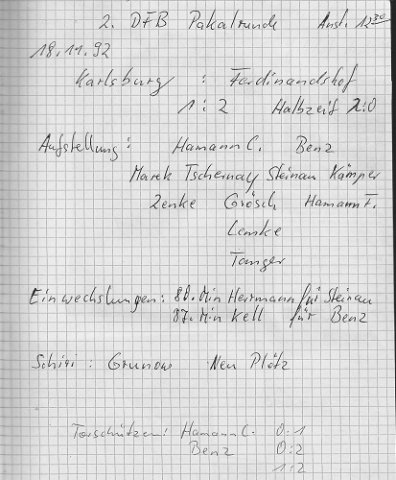 2. DFB Pokalrunde Anst. 12³⁰
18.11.92
Karlsburg : Ferdinandshof
1 : 2 Halbzeit 2:0
Aufstellung: Hamann C. Benz
Marek Tschernay Steinau Kämper
Zenke Grösch Hamann F.
Lemke
Tanger
Einwechslungen: 80. Min Herrmann für Steinau
87. Min Kell für Benz
Schiri : Grunow Neu Plötz
Torschützen: Hamann C. 0:1
Benz 0:2
1:2